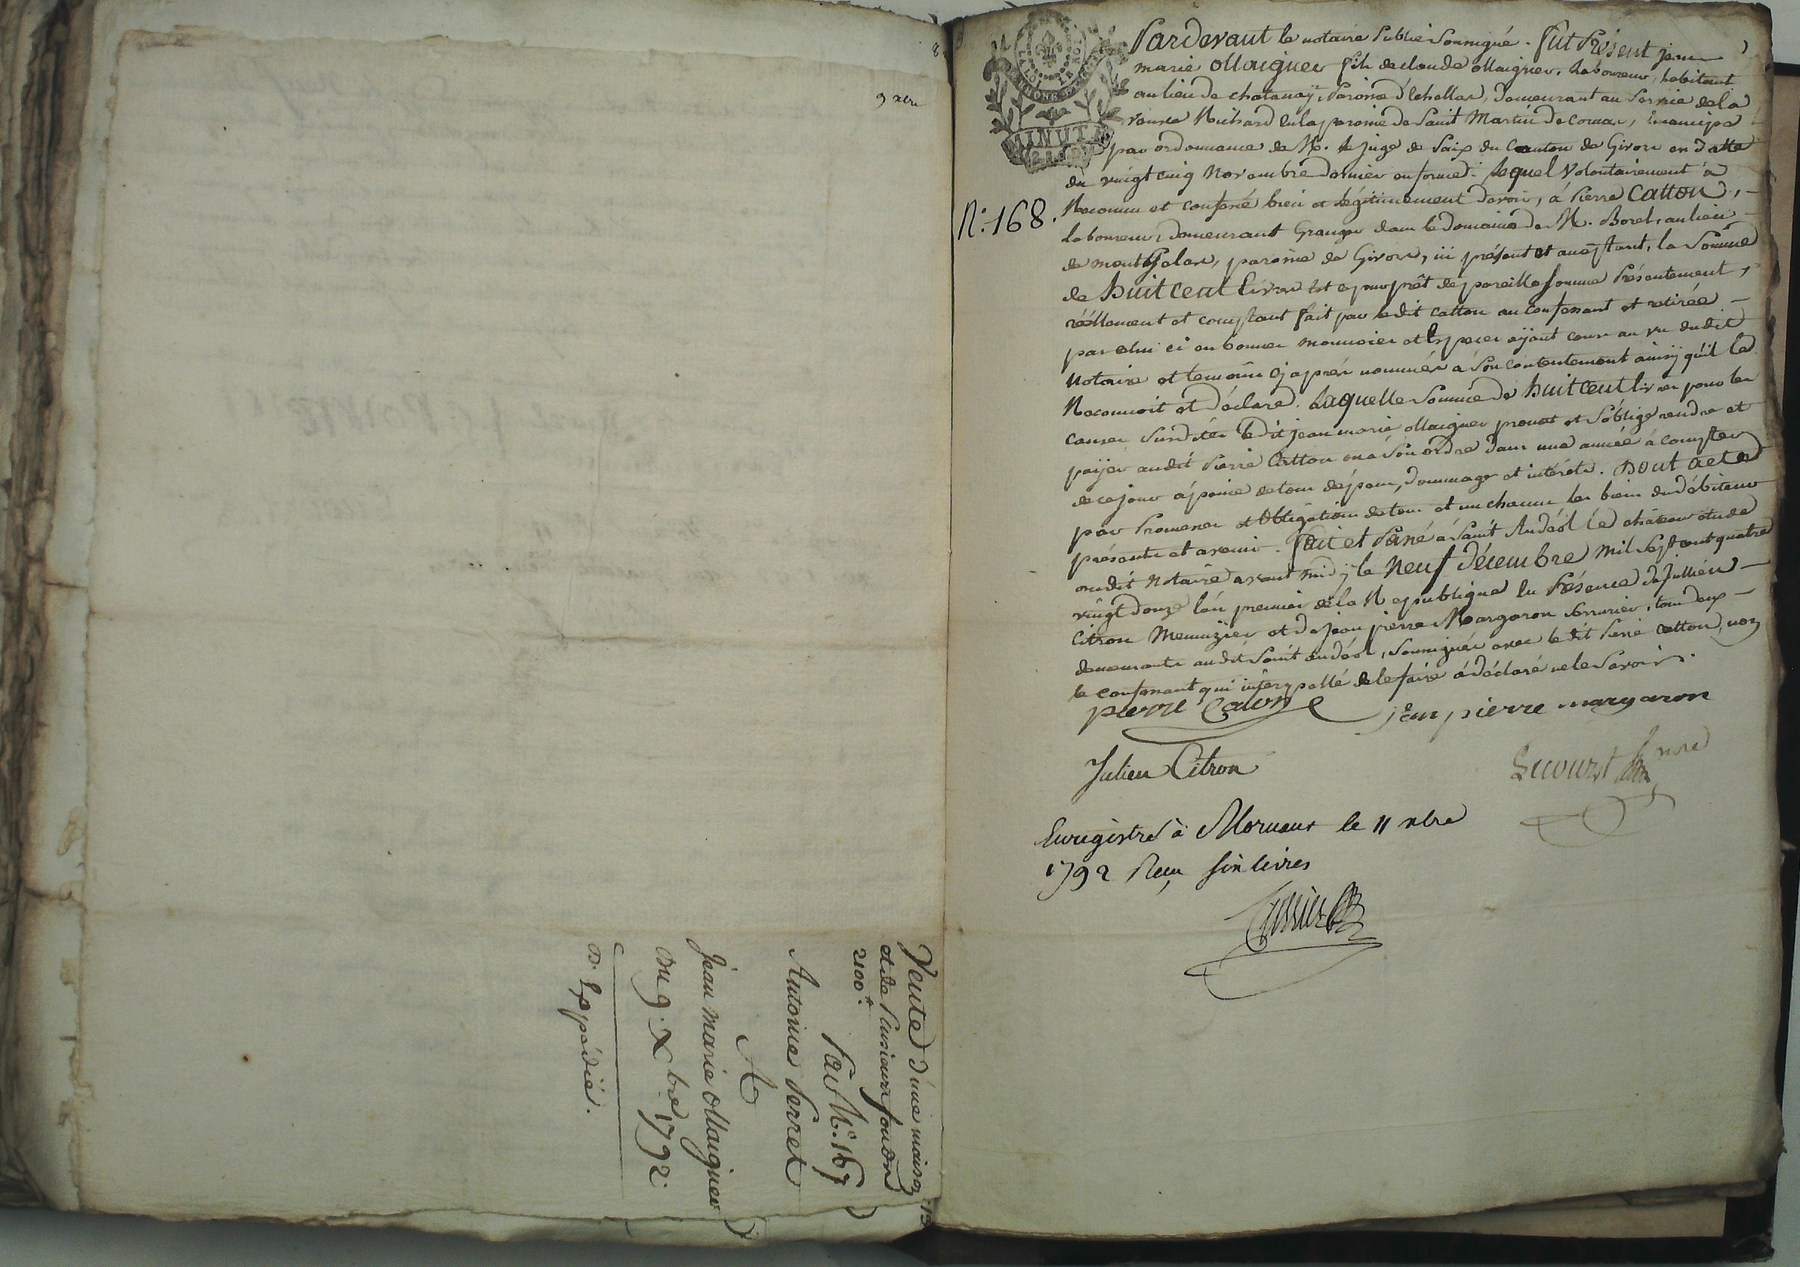 9 xbre
Vente d'une maison
et de Plusieurs fonds
2100#.
Par N.° 167
Antoine Perret
A
Jean marie Maignier
Du 9. Xbre 1792.
D. Expédiée.
MINUTE
N.° 168.
Pardevant le notaire Public soussigné. fût Présent jean
marie Maignier fils de claude Maignier, Laboureur, habitant
au lieu de chatanaÿ, Paroisse d'échallas, demeurant au service de la
veuve Richard en la paroisse de Saint Martin de Cornas, émancipé
par ordonnance de M. le juge de Paix du Canton de Givors en datte
du vingt cinq Novembre dernier en forme. Lequel Volontairement à
Reconnu et confessé bien et légitimement devoir, à Pierre Catton,
Laboureur, demeurant Granger dans le domaine de M. Borel, au lieu
de mont, paroisse de Givors, ici présent et acceptant, la Somme
de huit cent Livres et pour prêt de pareille somme Présentement,
réellement et comptant fait par ledit catton au confessant et retirée
par celui ci en bonnes monnoies et Espèces ayant cours au vu dudit
Notaire et témoins cy après nommés à son contentement ainsy qu'il le
Reconnoit et déclare. Laquelle Somme de huit cent livres pour les
causes susdites ledit jean marie Maignier promet et s'oblige rendre et
païjer audit Pierre Catton ou à son ordre dans une année à compter
de ce jour à peine de tous dépens, dommages et intérêts. Dont acte
par Promesses et Obligations de tous et un chacun les biens du débiteur
présents et avenir. Fait et Passé à Saint Andéol le château étude
dudit Notaire avant midÿ le Neuf décembre mil sept cent quatre
vingt douze l'an premier de la République En Présence de Jullien
Citron Menuizier et de Jean pierre Margaron Serrurier, tous deux
demeurants audit Saint andéol, soussignés avec ledit Pierre catton, non
le confessant qui interpellé de le faire à déclaré ne le Savoir.
pierre Caton
jean pierre margaron
Julien Citron
Enregistré à Mornant le 11 xbre
1792 Reçu six livres